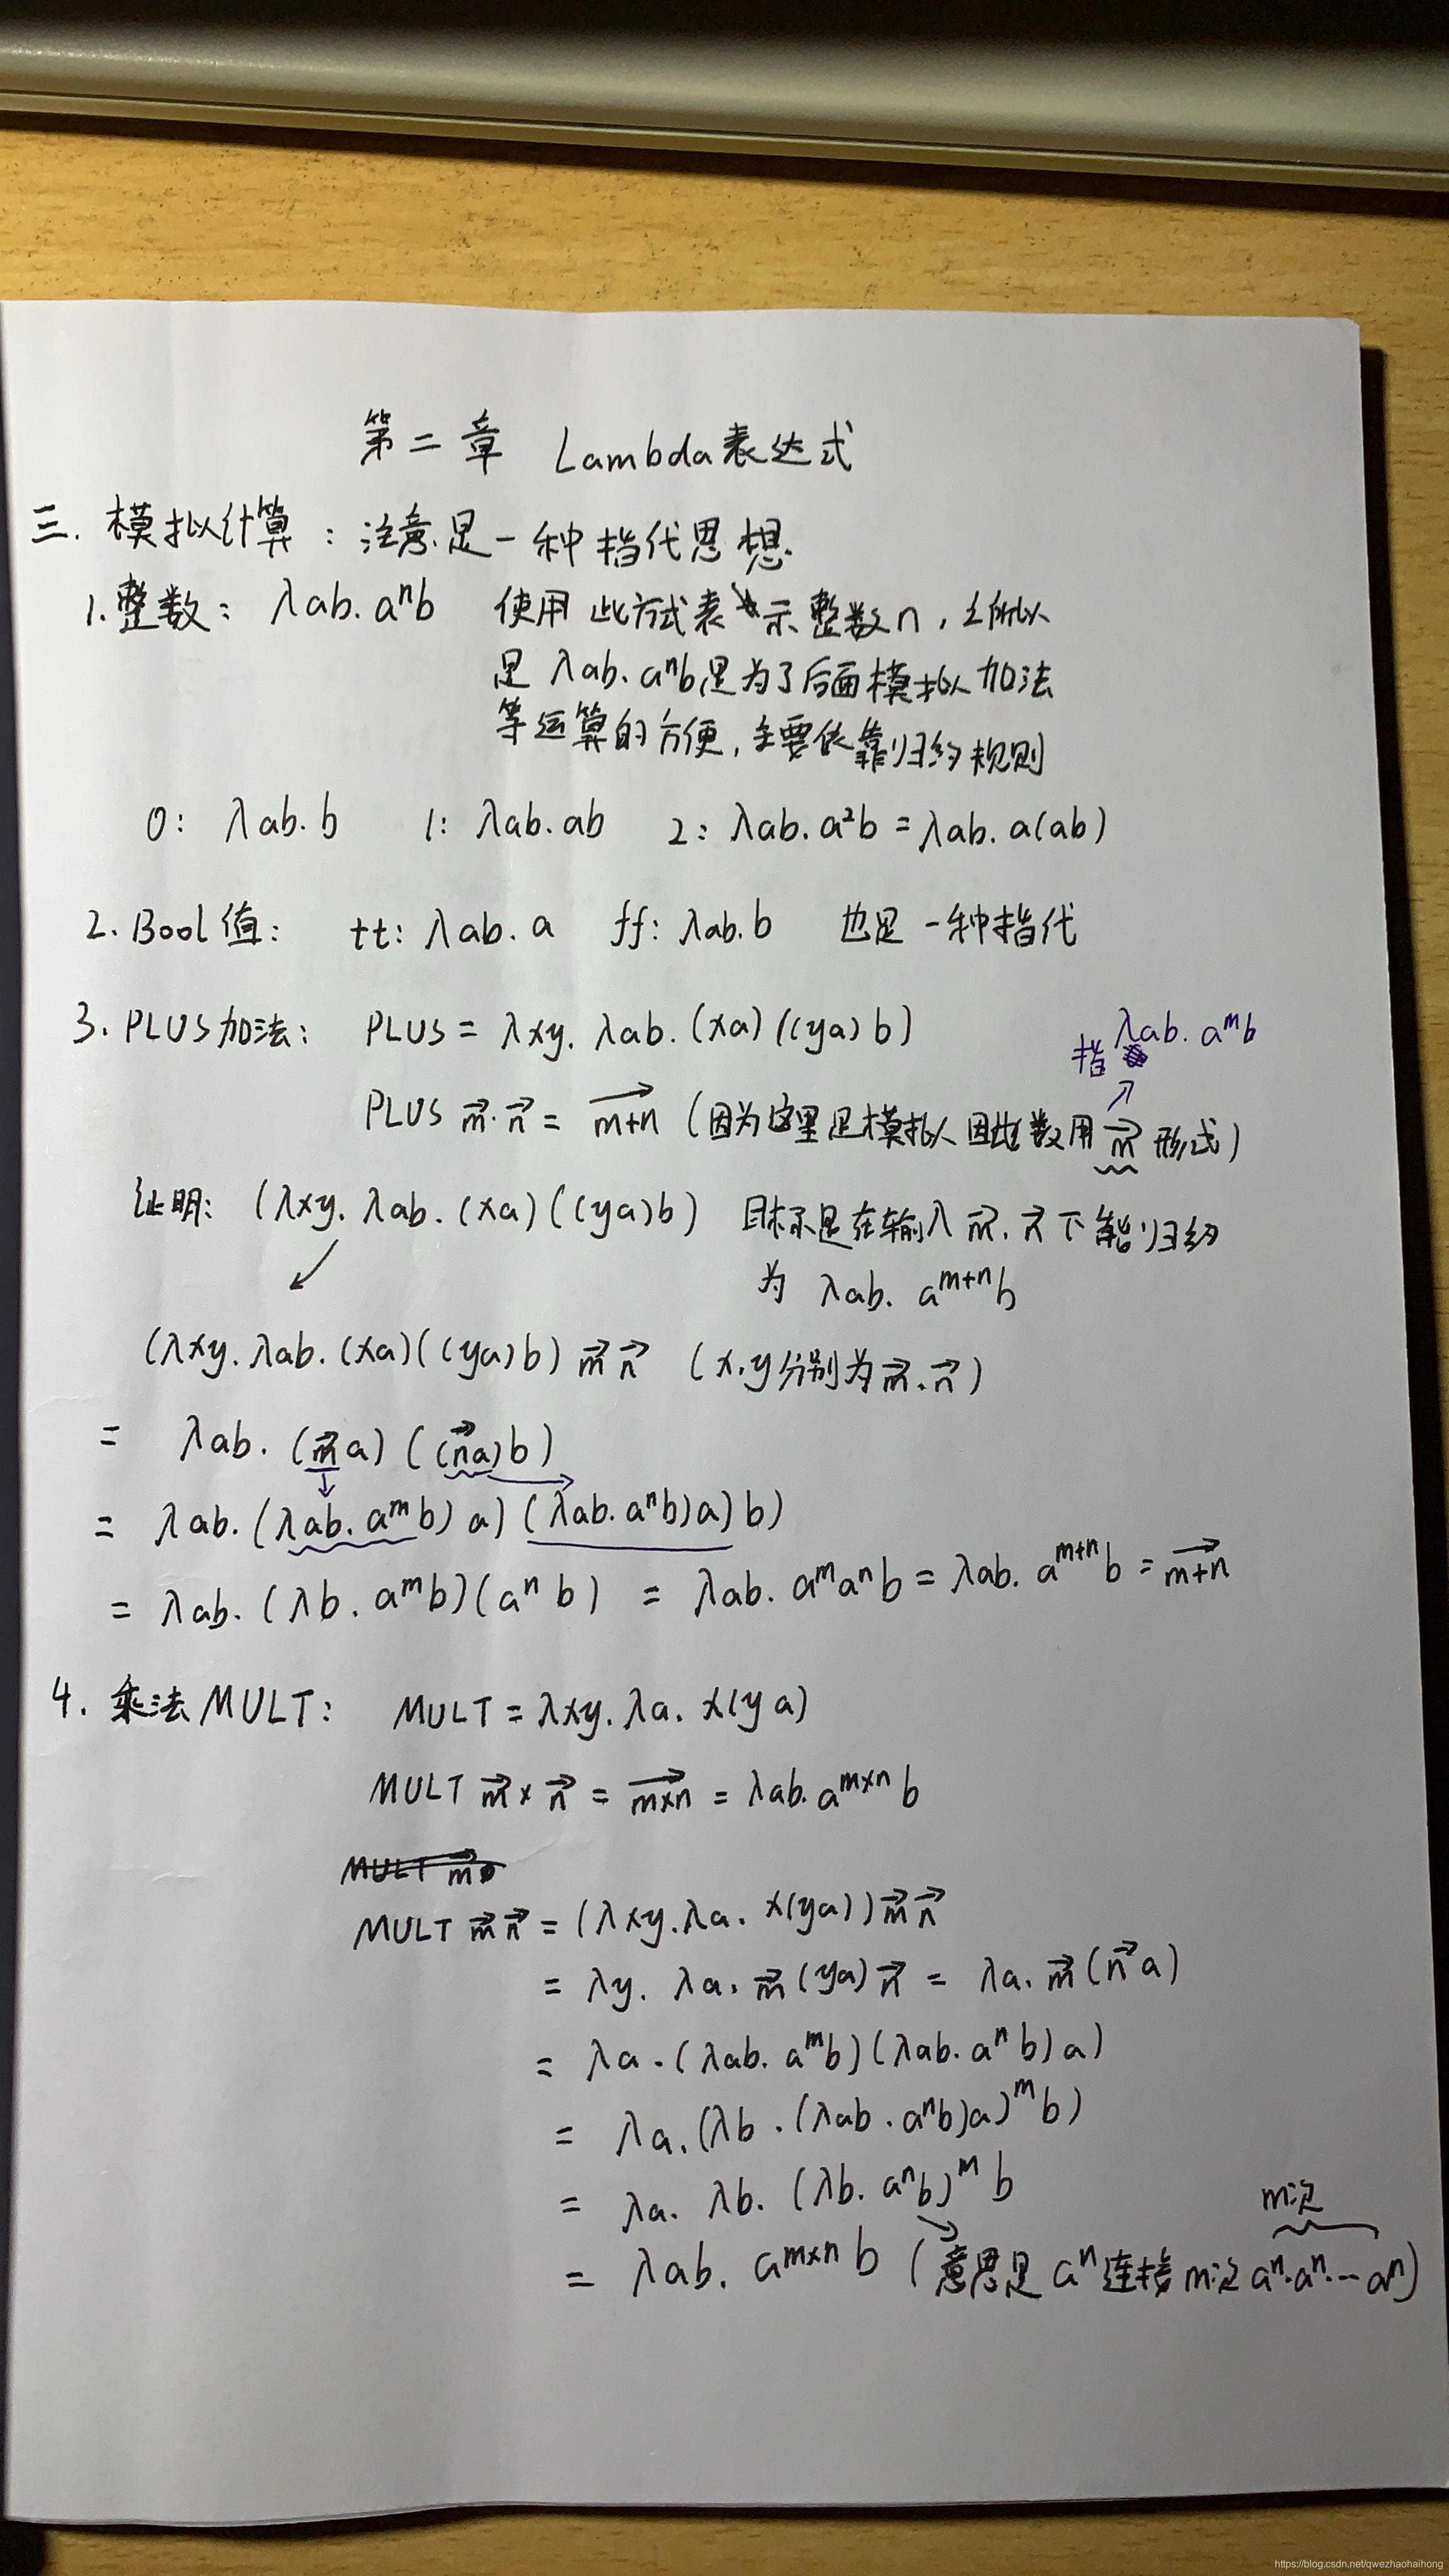 第二章 Lambda表达式
三. 模拟计算：注意是一种指代思想.
1. 整数： λab. aⁿb 使用此方式表示整数n，之所以
是 λab. aⁿb是为了后面模拟加法
等运算的方便，主要依靠归约规则
0： λab. b 1： λab. ab 2： λab. a²b = λab. a(ab)
2. Bool值： tt： λab. a ff： λab. b 也是一种指代
3. PLUS加法： PLUS = λxy. λab. (xa) ((ya) b)
指 λab. aᵐb
PLUS m⃗·n⃗ = \overrightarrow{m+n} (因为这里是模拟 因此数用 m⃗ 形式)
证明： (λxy. λab. (xa) ((ya)b) 目标是在输入 m⃗. n⃗ 下能归约
为 λab. aᵐ⁺ⁿb
(λxy. λab. (xa) ((ya)b) m⃗ n⃗ (x.y分别为m⃗.n⃗)
= λab. (m⃗a) ((n⃗a)b)
= λab. (λab. aᵐb) a) (λab. aⁿb)a) b)
= λab. (λb. aᵐb)(aⁿ b) = λab. aᵐaⁿb = λab. aᵐ⁺ⁿb = \overrightarrow{m+n}
4. 乘法MULT： MULT = λxy. λa. x(y a)
MULT m⃗ × n⃗ = \overrightarrow{m×n} = λab. a^{m×n} b
MULT m⃗
MULT m⃗ n⃗ = (λxy. λa. x(ya)) m⃗ n⃗
= λy. λa. m⃗ (ya) n⃗ = λa. m⃗ (n⃗ a)
= λa. (λab. aᵐb) (λab. aⁿ b) a)
= λa. (λb. (λab. aⁿb)a)ᵐ b)
= λa. λb. (λb. aⁿb)ᵐ b
m次
= λab. a^{m×n} b (意思是 aⁿ连接m次 aⁿ·aⁿ·…aⁿ)
https://blog.csdn.net/qwezhaohaihong